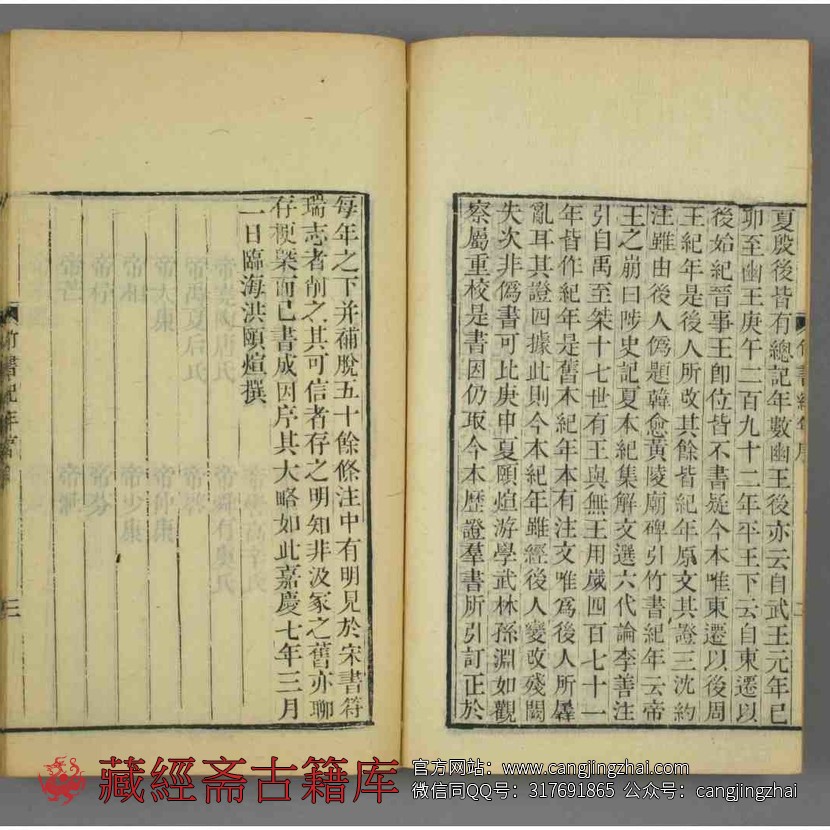 夏殷後皆有總記年數幽王後亦云自武王元年己
卯至幽王庚午二百九十二年平王下云自東遷以
後始紀晉事王卽位皆不書疑今本唯東遷以後周
王紀年是後人所改其餘皆紀年原文其證三沈約
注雖由後人僞題韓愈黃陵廟碑引竹書紀年云帝
王之崩曰陟史記夏本紀集解文選六代論李善注
引自禹至桀十七世有王與無王用歲四百七十一
年皆作紀年是舊本紀年本有注文唯爲後人所羼
亂耳其證四據此則今本紀年雖經後人變改殘闕
失次非僞書可比庚申夏頤煊游學武林孫淵如觀
察屬重校是書因仍取今本歷證羣書所引訂正於
每年之下并補脫五十餘條注中有明見於宋書符
瑞志者削之其可信者存之明知非汲冢之舊亦聊
存梗槩而已書成因序其大略如此嘉慶七年三月
二日臨海洪頤煊撰
三
藏經斋古籍库
官方网站：www.cangjingzhai.com
微信同QQ号：317691865 公众号：cangjingzhai